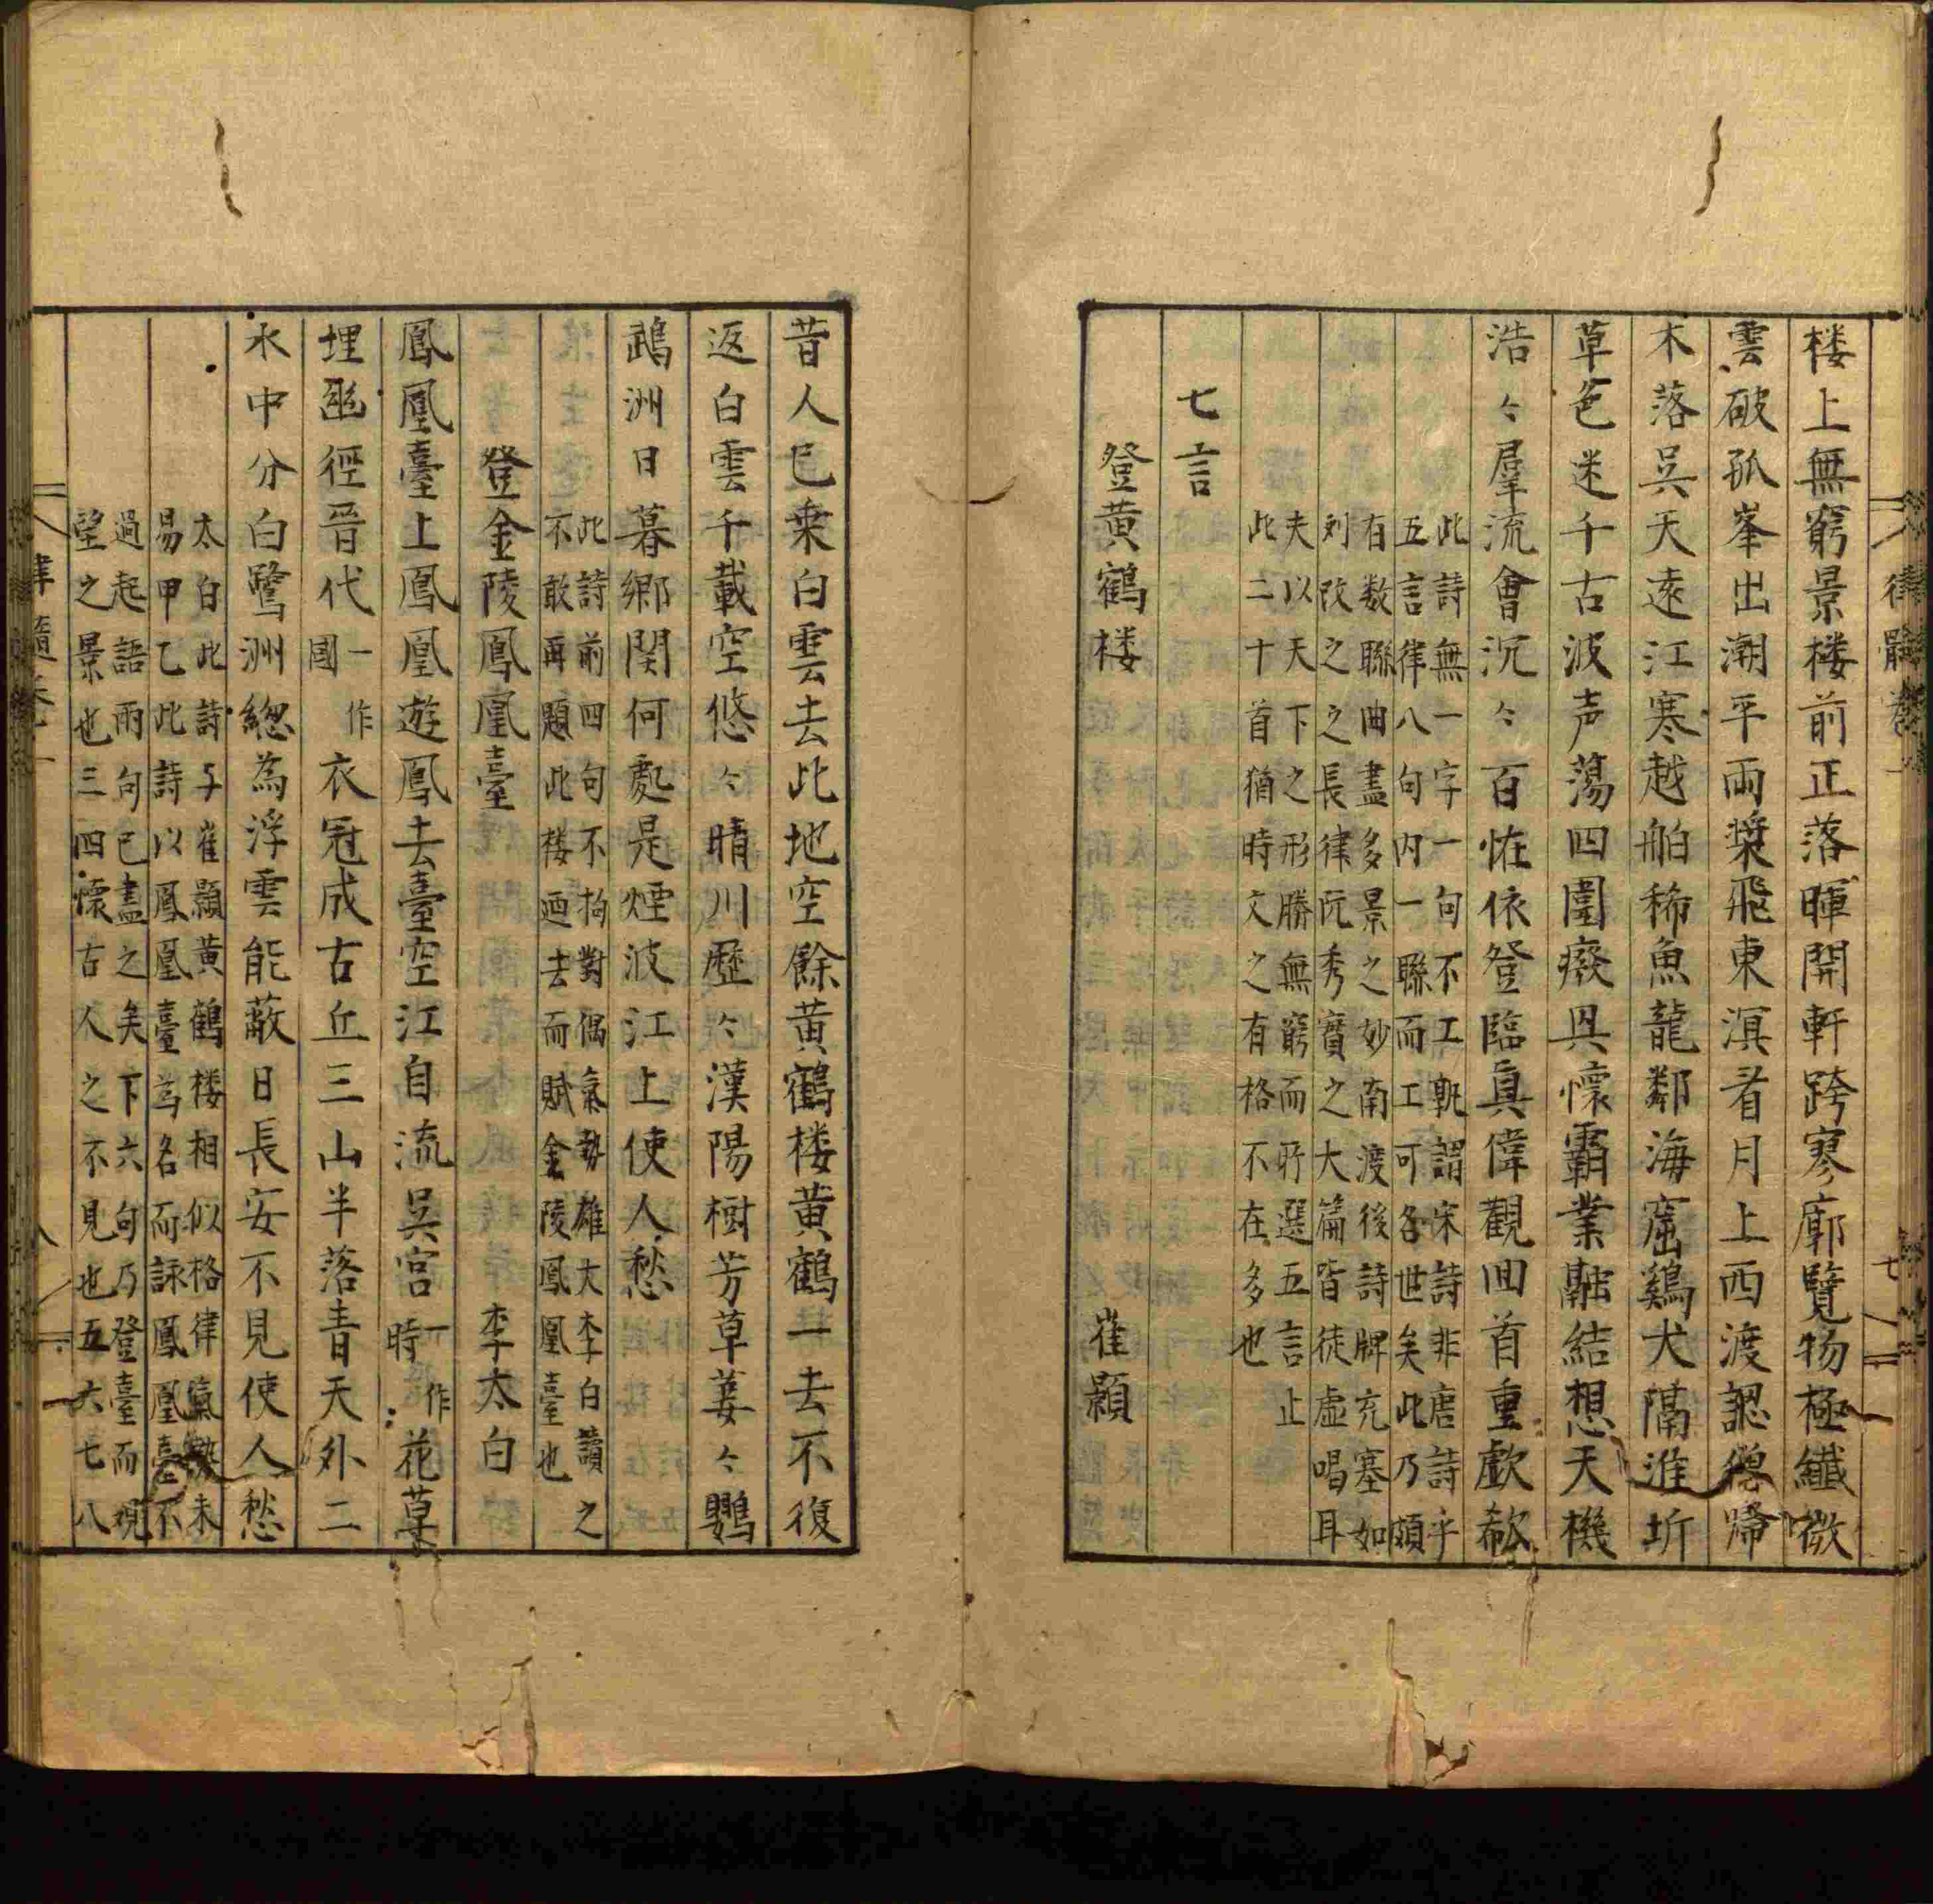 律髓卷一
七
楼上無窮景楼前正落暉開軒跨寥廓覽物極纖微
雲破孤峯出潮平兩槳飛東溟看月上西渡認僧歸
木落吳天遠江寒越舶稀魚龍鄰海窟鷄犬隔淮圻
草色迷千古波声蕩四圍癈興懷霸業融結想天機
浩々羣流會沉々百恠依登臨真偉觀回首重歔欷
此詩無一字一句不工孰謂宋詩非唐詩乎
五言律八句内一聯而工可名世矣此乃頗
有数聯曲盡多景之妙南渡後詩牌充塞如
刘改之之長律阮秀實之大篇皆徒虛唱耳
夫以天下之形勝無窮而所選五言止
此二十首猶時文之有格不在多也
七言
登黄鶴楼 崔顥
昔人已乗白雲去此地空餘黄鶴楼黄鶴一去不復
返白雲千載空悠々晴川歷々漢陽樹芳草萋々鸚
鵡洲日暮鄉関何處是煙波江上使人愁
此詩前四句不拘對偶氣勢雄大李白讀之
不敢再題此楼廼去而賦金陵鳳凰臺也
登金陵鳳凰臺 李太白
鳳凰臺上鳳凰遊鳳去臺空江自流吳宫一作時花草
埋幽徑晉代一作國衣冠成古丘三山半落青天外二
水中分白鷺洲緫為浮雲能蔽日長安不見使人愁
太白此詩与崔顥黄鶴楼相似格律氣勢未
易甲乙此詩以鳳凰臺為名而詠鳳凰臺不
過起語兩句已盡之矣下六句乃登臺而觀
望之景也三四懷古人之不見也五六七八
律髓卷一
八